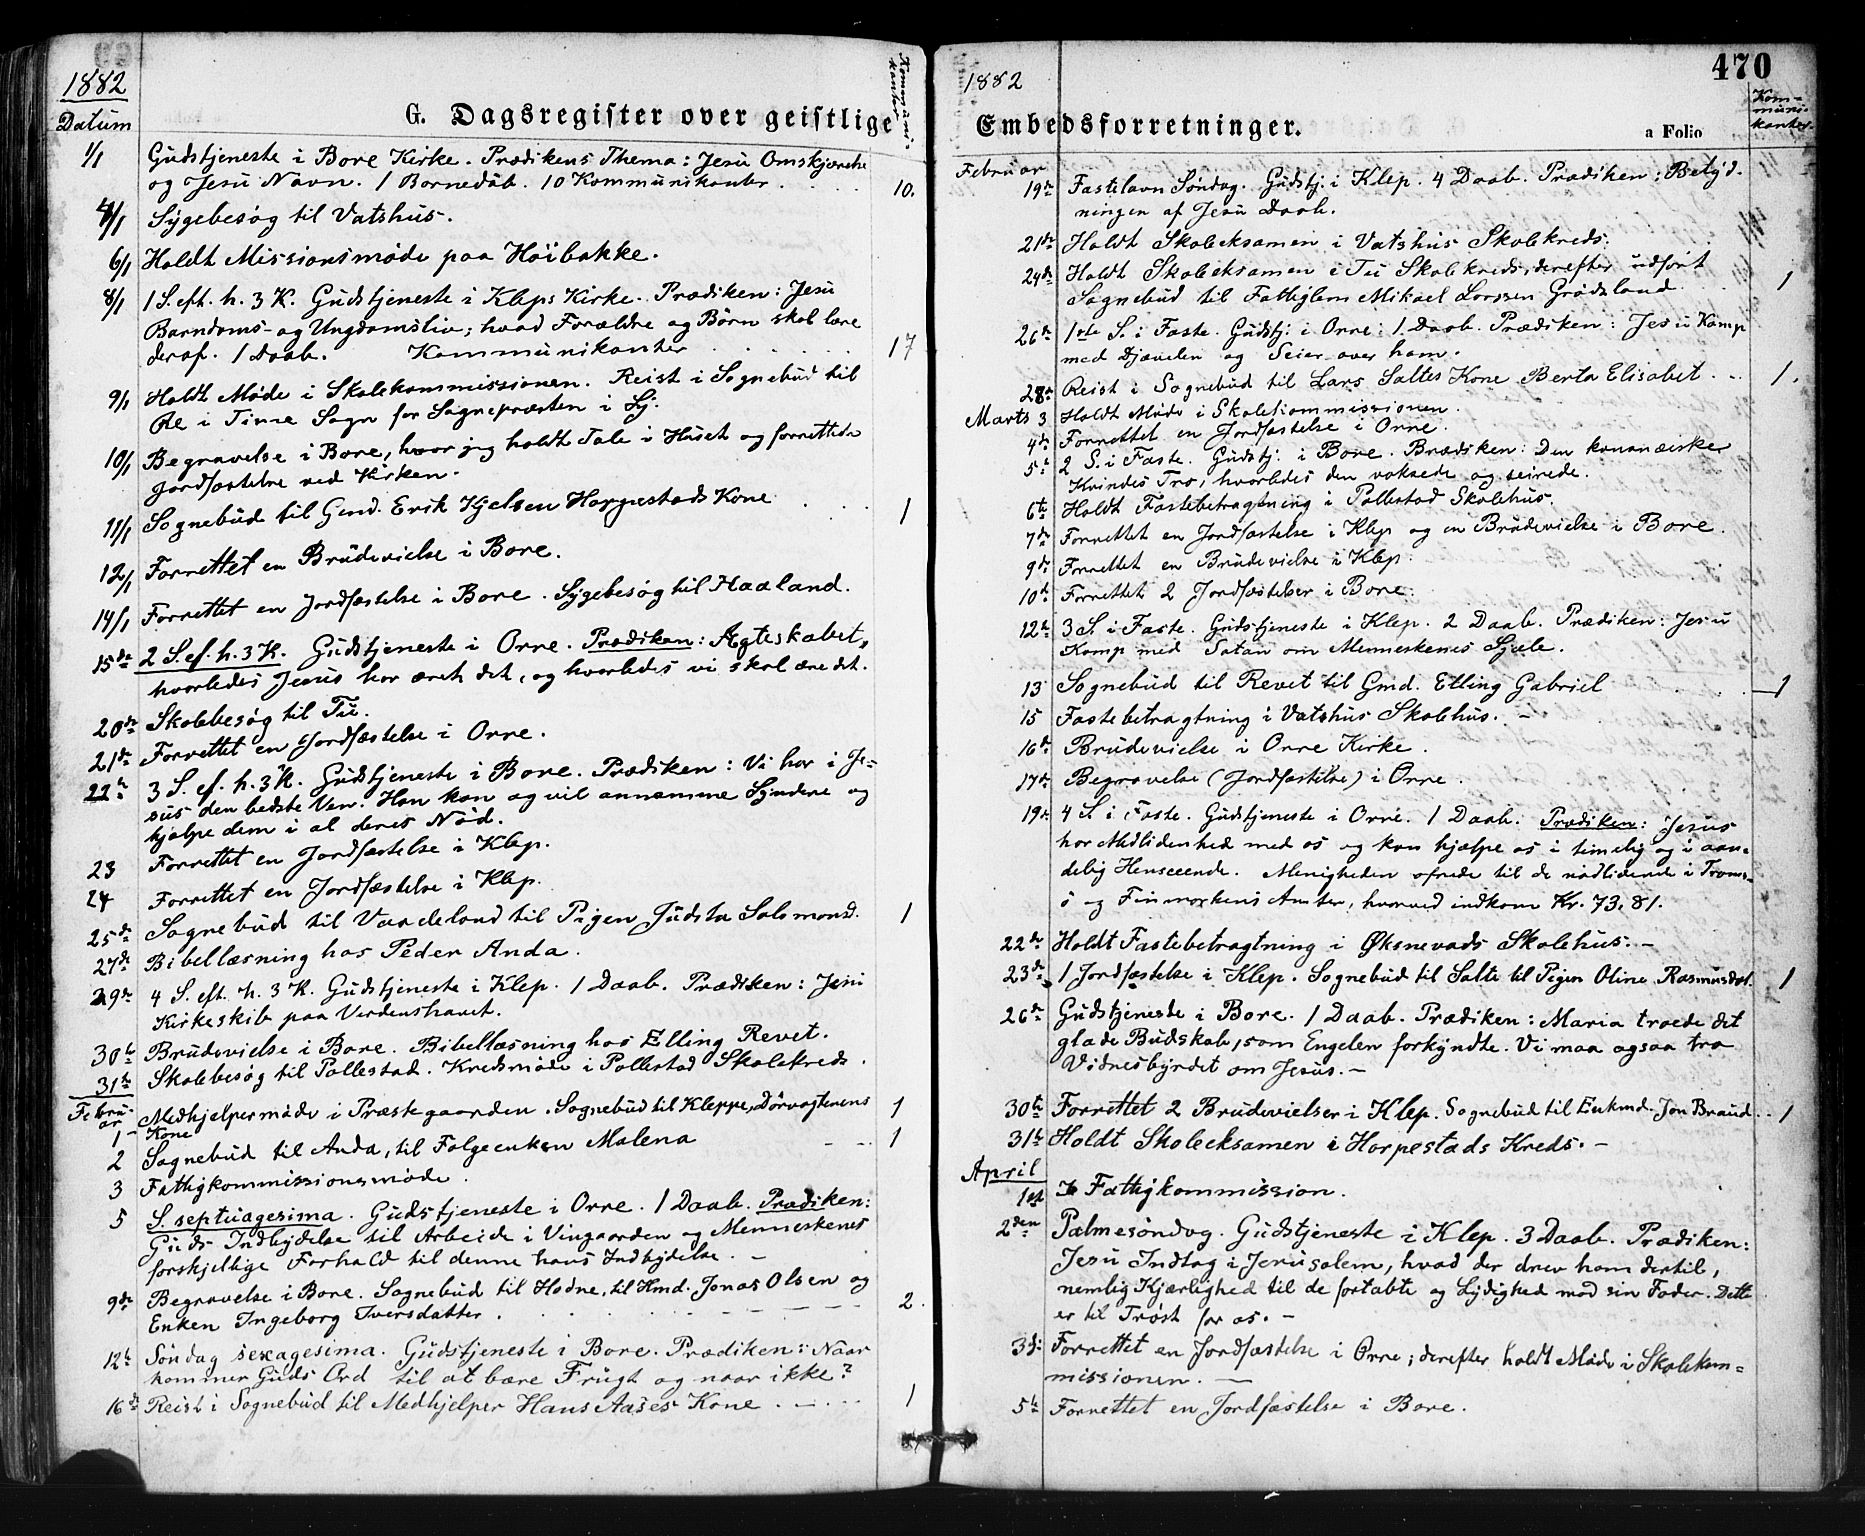 1882
Datum
G. Dagsregister over geistlige
Kommuni-
kanter
1/1 Gudstjeneste i Bore Kirke. Prædikens Thema: Jesu Omskjærelse
og Jesu Navn. 1 Barnedåb. 10 Kommunikanter. 10.
4/1 Sygebesøg til Vatshus.
6/1 Holdt Missionsmøde paa Høibakke.
8/1 1 S. eft. h. 3 K. Gudstjeneste i Kleps Kirke. Prædiken: Jesu
Barndoms- og Ungdomsliv; hvad Forældre og Børn skal lære
deraf. 1 Daab. Kommunikanter 17
9/1 Holdt Møde i Skolekommissionen. Reist i Sognebud til
Re i Time Sogn for Sognepræsten i Lj.
10/1 Begravelse i Bore, hvor jeg holdt Tale i Huset og forrettede
Jordfæstelse ved Kirken.
11/1 Sognebud til Gmd. Erik Kjelsen Horpestads Kone 1
12/1 Forrettet en Brudevielse i Bore.
14/1 Forrettet en Jordfæstelse i Bore. Sygebesøg til Haaland.
15de 2 S. ef. h. 3 K. Gudstjeneste i Orre. Prædiken: Ægteskabet,
hvorledes Jesus har æret det, og hvorledes vi skal ære det.
20de Skolebesøg til Tu.
21de Forrettet en Jordfæstelse i Orre.
22de 3 S. ef. h. 3 K. Gudstjeneste i Bore. Prædiken: Vi har i Je-
sus den bedste Ven. Han kan og vil annamme Syndere og
hjælpe dem i al deres Nød.
23 Forrettet en Jordfæstelse i Klep.
24 Forrettet en Jordfæstelse i Klep.
25de Sognebud til Vardeland til Pigen Gudsta Salomonsd. 1
27de Bibellæsning hos Peder Anda.
29de 4 S. eft. h. 3 K. Gudstjeneste i Klep. 1 Daab. Prædiken: Jesu
Kirkeskib paa Verdenshavet.
30te Brudevielse i Bore. Bibellæsning hos Elling Revet.
31te Skolebesøg til Pollestad. Kredsmøde i Pollestad Skolekreds.
Febru-
ar
1 Medhjelpermøde i Præstegaarden. Sognebud til Kleppe, Dørvogterens 1
Kone
2 Sognebud til Anda, til Folgeenken Malena 1
3 Fattigkommissionsmøde.
5 S. septuagesima. Gudstjeneste i Orre. 1 Daab. Prædiken:
Guds Indbydelse til Arbeide i Vingaarden og Menneskenes
forskjellige Forhold til denne hans Indbydelse. –
9de Begravelse i Bore. Sognebud til Hodne, til Kmd. Jonas Olsen og
Enken Ingeborg Tversdatter. 2.
12te Søndag sexagesima. Gudstjeneste i Bore. Prædiken: Naar
kommer Guds Ord til at bære Frugt og naar ikke?
16de Reist i Sognebud til Medhjelper Hans Aases Kone. 1
1882
470
Embedsforretninger.
a Folio
Kom-
muni-
kanter.
Februar
19de Fastelavn Søndag. Gudstj. i Klep. 4 Daab. Prædiken: Betyd-
ningen af Jesu Daab.
21de Holdt Skoleeksamen i Vatshus Skolekreds.
24de Holdt Skoleeksamen i Tu Skolekreds, derefter udført
Sognebud til Fattiglem Mikael Larssen Grødeland 1
26de 1ste S. i Faste. Gudstj. i Orre. 1 Daab. Prædiken: Jesu Kamp
med Djævelen og Seier over ham.
28de Reist i Sognebud til Lars Saltes Kone Berta Elisabet 1.
Marts 3 Holdt Møde i Skolekommissionen.
4de Forrettet en Jordfæstelse i Orre.
5te 2 S. i Faste. Gudstj. i Bore. Prædiken: Den kananæiske
Kvindes Tro, hvorledes den voksede og seirede.
6te Holdt Fastebetragtning i Pollestad Skolehus.
7de Forrettet en Jordfæstelse i Klep og en Brudevielse i Bore.
9de Forrettet en Brudevielse i Klep.
10de Forrettet 2 Jordfæstelser i Bore.
12te 3 S. i Faste. Gudstjeneste i Klep. 2 Daab. Prædiken: Jesu
Kamp med Satan om Menneskenes Sjæle.
13 Sognebud til Revet til Gmd. Elling Gabriel 1
15 Fastebetragtning i Vatshus Skolehus. –
16de Brudevielse i Orre Kirke.
17de Begravelse (Jordfæstelse) i Orre.
19de 4 S. i Faste. Gudstjeneste i Orre. 1 Daab. Prædiken: Jesus
har Medlidenhed med os og kan hjælpe os i timelig og i aan-
delig Henseende. Menigheden ofrede til de nødlidende i Troms-
ø og Finmarkens Amter, hvorved indkom Kr. 73,81.
22de Holdt Fastebetragtning i Øksnevads Skolehus. –
23de 1 Jordfæstelse i Klep. Sognebud til Salte til Pigen Oline Rasmusdat. 1
26de Gudstjeneste i Bore. 1 Daab. Prædiken: Maria troede det
glade Budskab, som Engelen forkyndte. Vi maa ogsaa tro
Vidnesbyrdet om Jesus. –
30te Forrettet 2 Brudevielser i Klep. Sognebud til Enkmd. Jon Braud. 1
31te Holdt Skoleeksamen i Horpestads Kreds. –
April
1st I Fattigkommission.
2den Palmesøndag. Gudstjeneste i Klep. 3 Daab. Prædiken:
Jesu Indtog i Jerusalem, hvad der drev ham dertil,
nemlig Kjærlighed til de fortabte og Lydighed mod sin Fader. Dette
er til Trøst for os. –
3die Forrettet en Jordfæstelse i Orre; derefter holdt Møde i Skolekom-
missionen. –
5te Forrettet en Jordfæstelse i Bore.